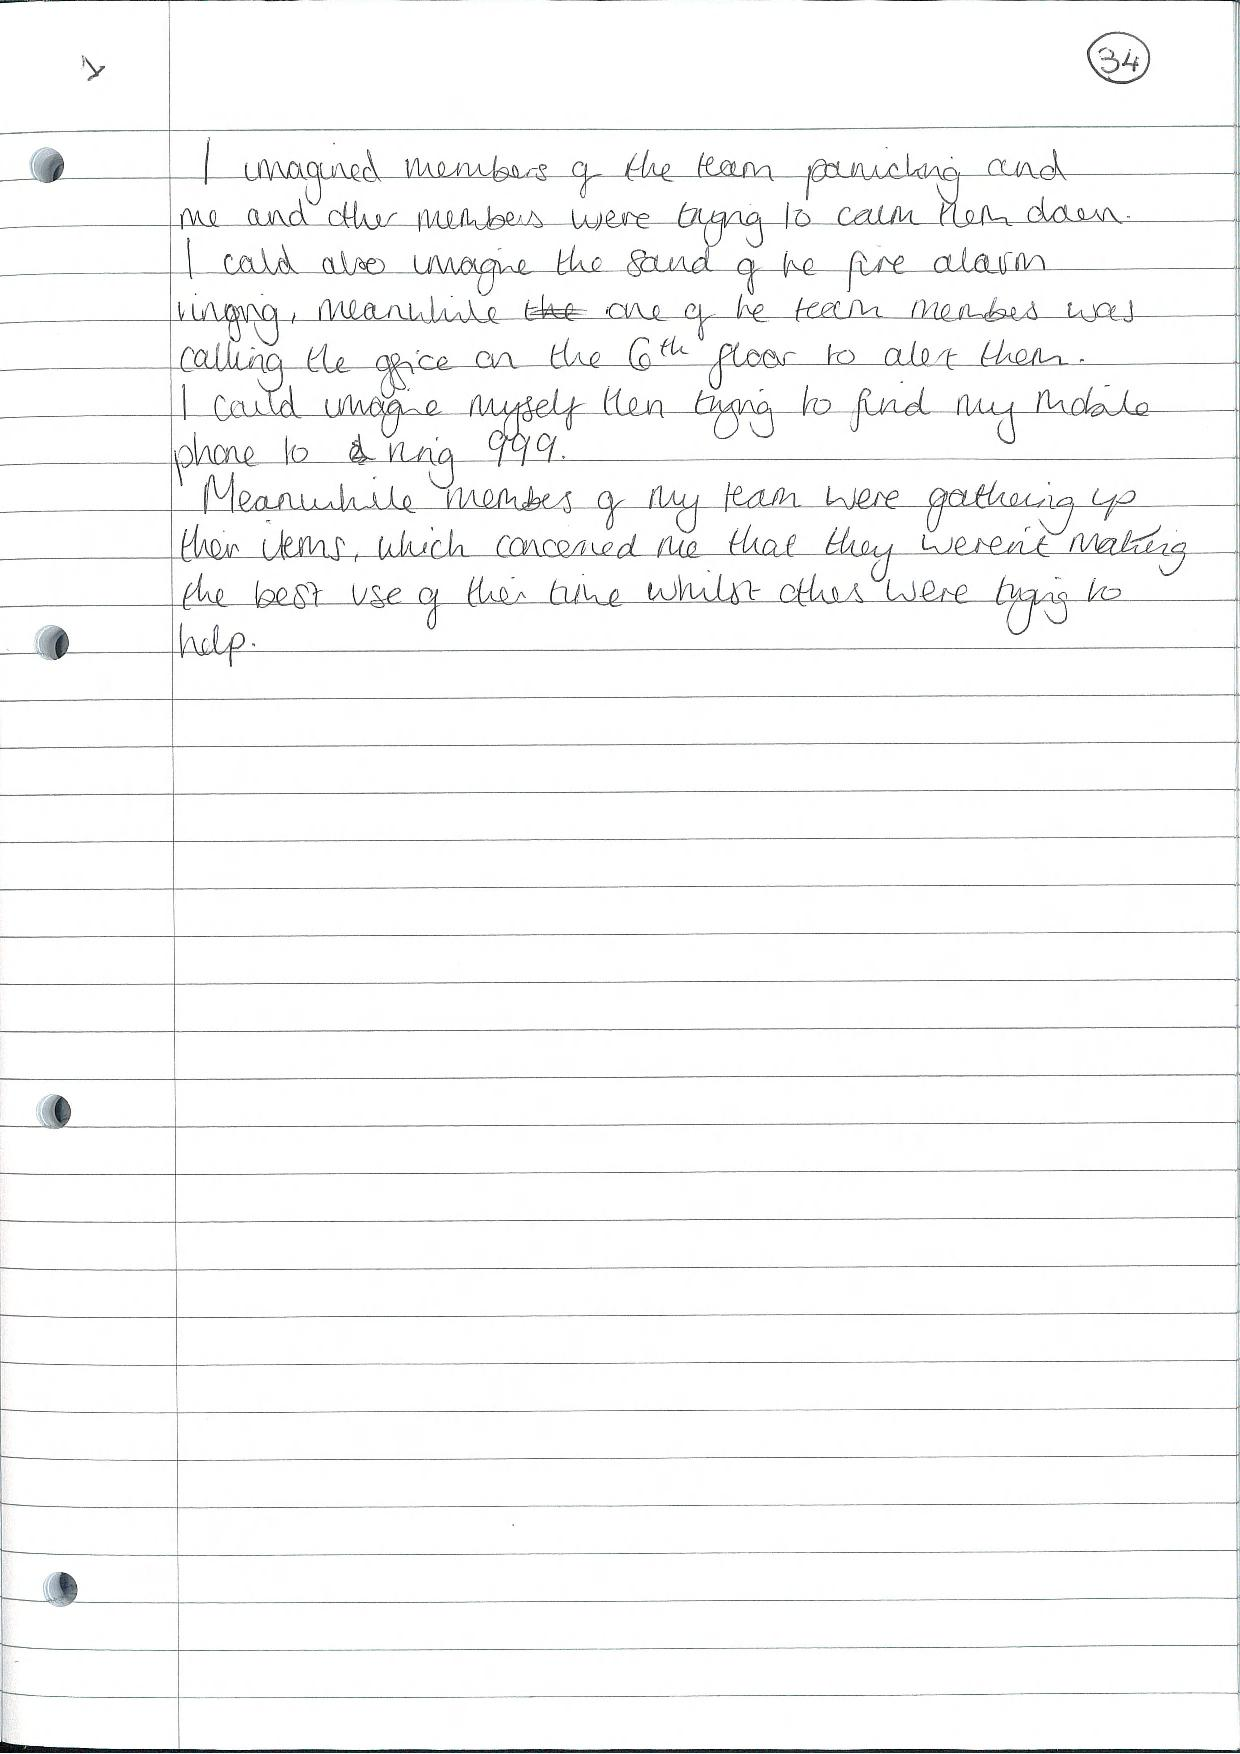 1
34
I imagined members of the team panicking and
me and other members were trying to calm them down.
I could also imagine the sound of the fire alarm
ringing, meanwhile the one of the team members was
calling the office on the 6th floor to alert them.
I could imagine myself then trying to find my mobile
phone to ring 999.
Meanwhile members of my team were gathering up
their items, which concerned me that they weren't making
the best use of their time whilst others were trying to
help.